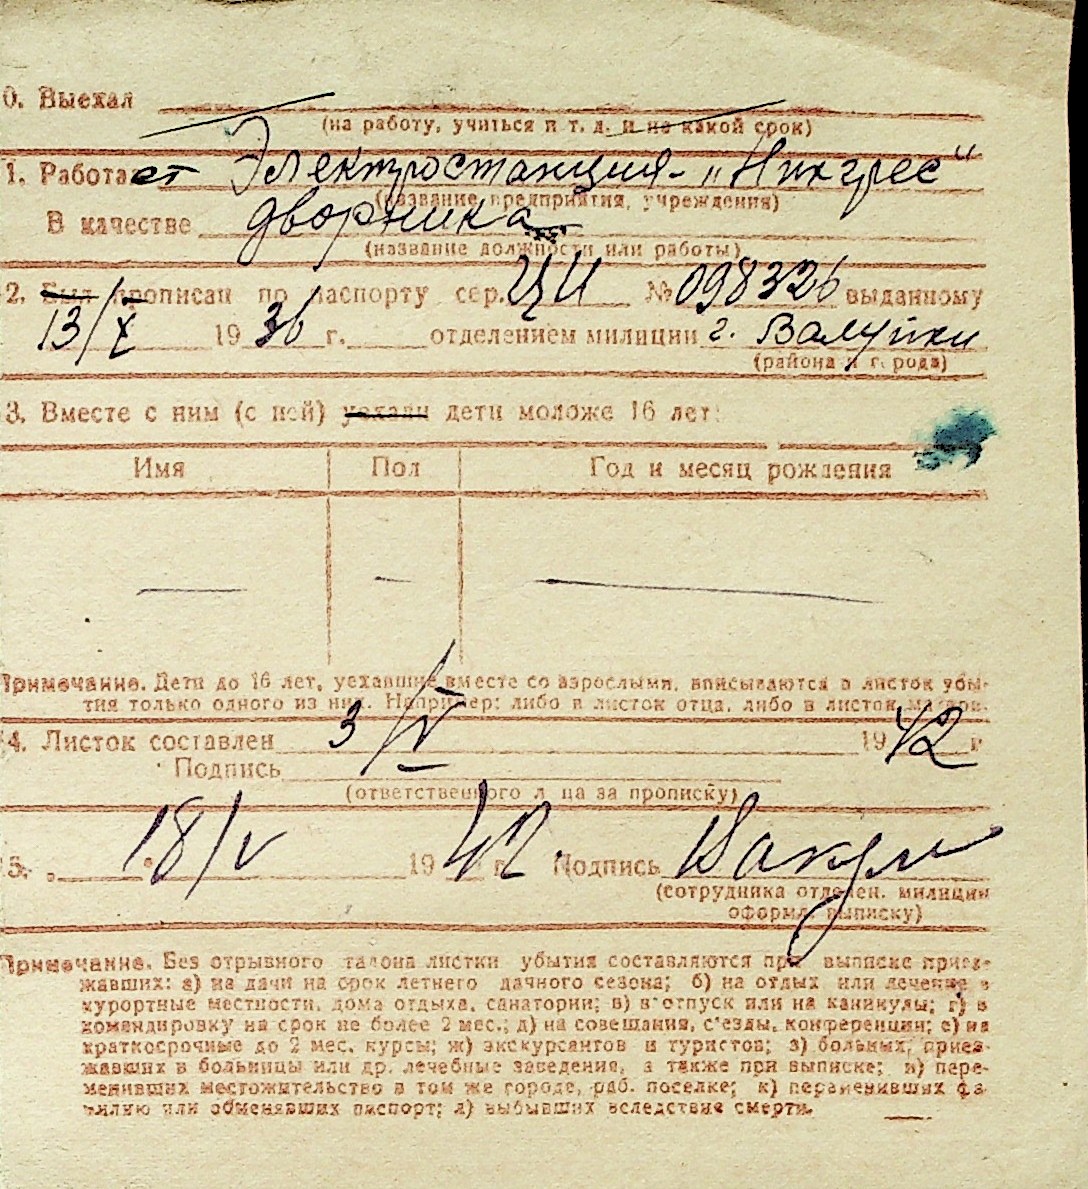 0. Выехал
(на работу, учиться и т. д. и на какой срок)
1. Работает Электростанция - „Нигрес“
(название предприятия, учреждения)
В качестве дворника
(название должности или работы)
2. Был прописан по паспорту сер. ЦИ № 098326 выданному
13/X 1936 г. отделением милиции г. Валуйки
(района и города)
3. Вместе с ним (с ней) уехали дети моложе 16 лет:
Имя Пол Год и месяц рождения
Примечание. Дети до 16 лет, уехавшие вместе со взрослыми, вписываются в листок убы-
тия только одного из них. Например: либо в листок отца, либо в листок матери.
4. Листок составлен 3/V 1942 г
Подпись
(ответственного лица за прописку)
5. 18/V 1942 г. Подпись
(сотрудника отделен. милиции
оформл. выписку)
Примечание. Без отрывного талона листки убытия составляются при выписке приез-
жавших: а) на дачи на срок летнего дачного сезона; б) на отдых или лечение в
курортные местности, дома отдыха, санатории; в) в отпуск или на каникулы; г) в
командировку на срок не более 2 мес.; д) на совещания, с'езды, конференции; е) на
краткосрочные до 2 мес. курсы; ж) экскурсантов и туристов; з) больных, приез-
жавших в больницы или др. лечебные заведение, а также при выписке; и) пере-
менивших местожительство в том же городе, раб. поселке; к) переменивших фа-
милию или обменявших паспорт; л) выбывших вследствие смерти.